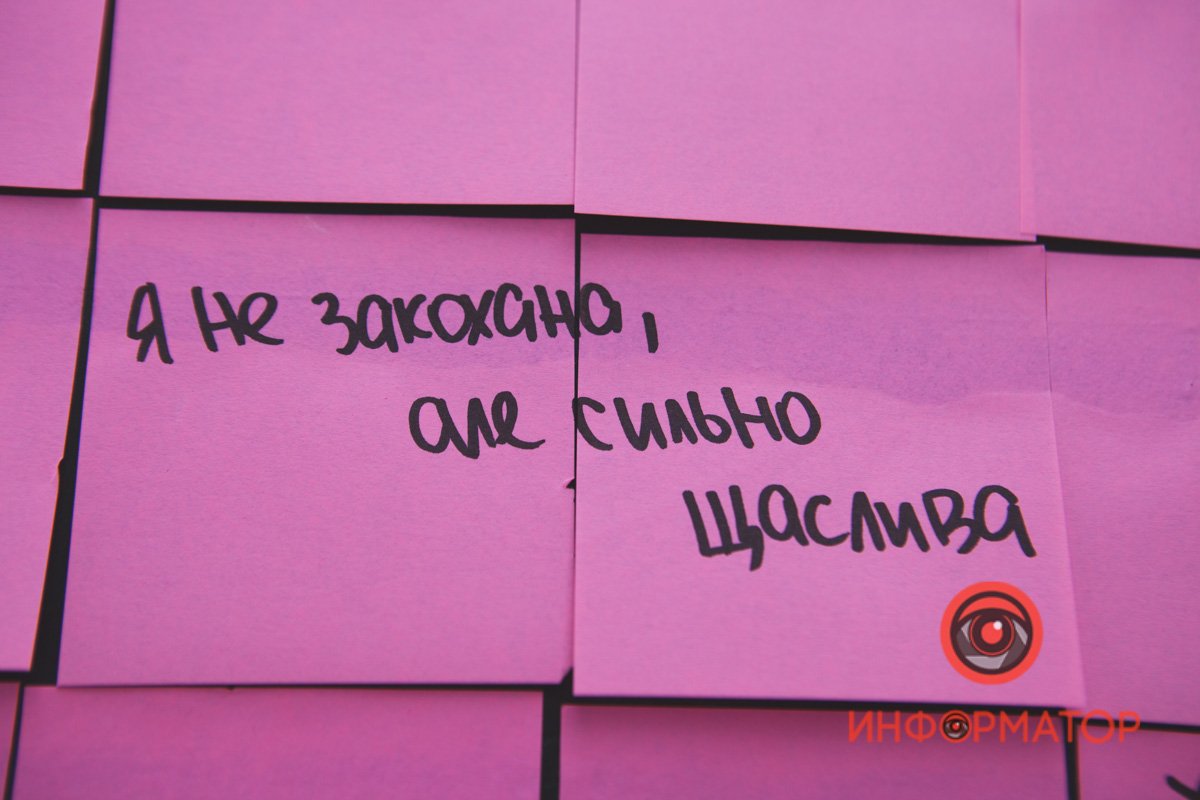 Я не закохана,
але сильно
щаслива
ИНФОРМАТОР